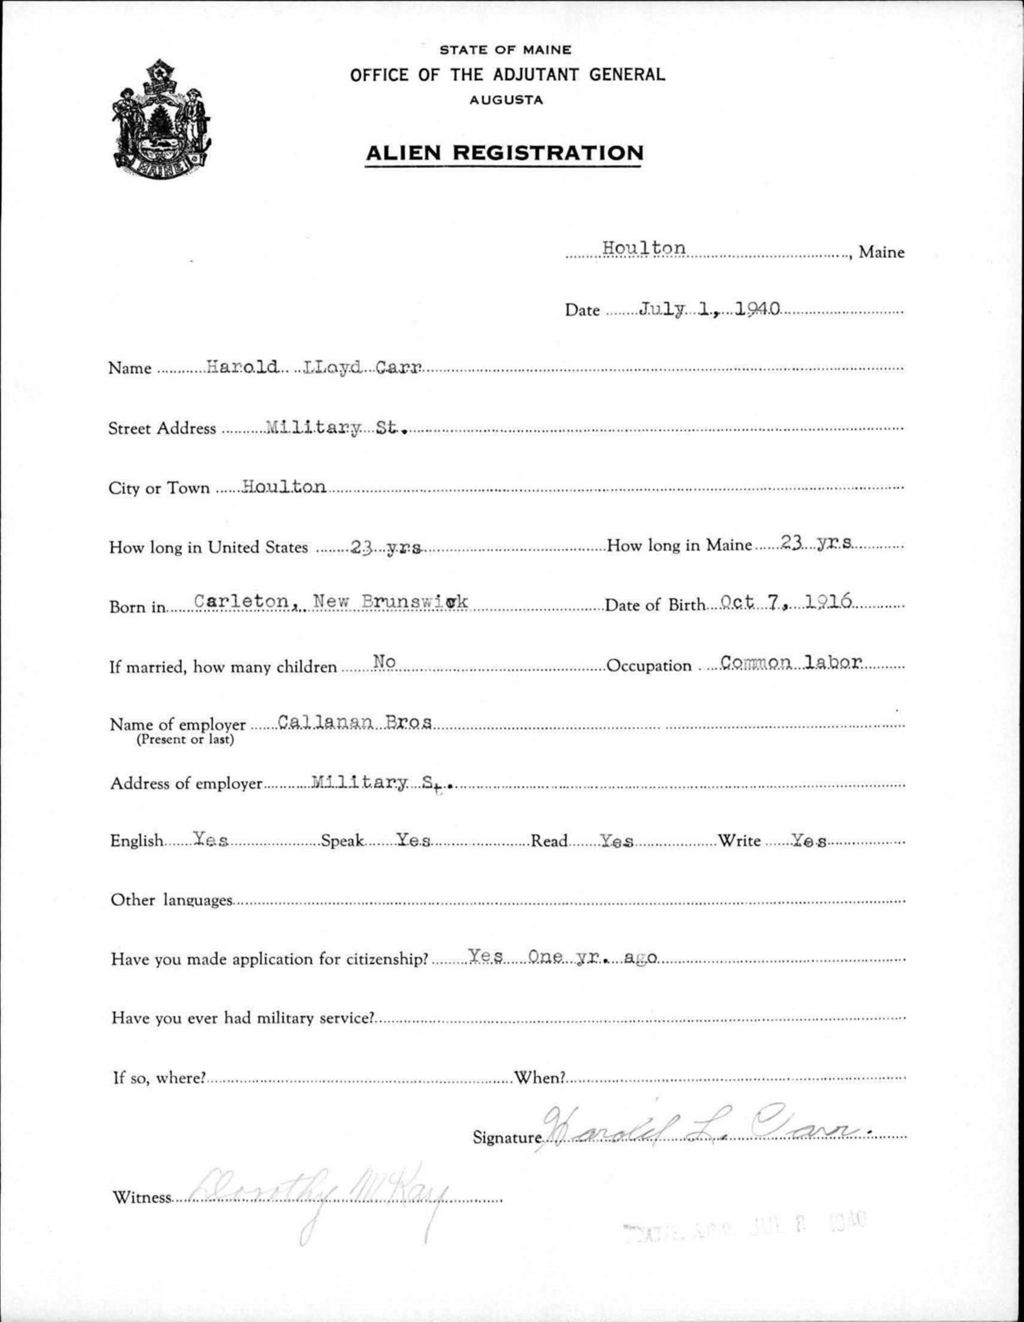 STATE OF MAINE
OFFICE OF THE ADJUTANT GENERAL
AUGUSTA
ALIEN REGISTRATION
MAINE
Houlton, Maine
Date July 1, 1940
Name Harold LLoyd Carr
Street Address Military St.
City or Town Houlton
How long in United States 23 yrs How long in Maine 23 yrs
Born in Carleton, New Brunswick Date of Birth Oct 7, 1916
If married, how many children No Occupation Common labor
Name of employer Callanan Bros
(Present or last)
Address of employer Military St.
English Yes Speak Yes Read Yes Write Yes
Other languages
Have you made application for citizenship? Yes One yr. ago
Have you ever had military service?
If so, where? When?
Signature Harold L. Carr.
Witness Dorothy McKay
JUL 1940